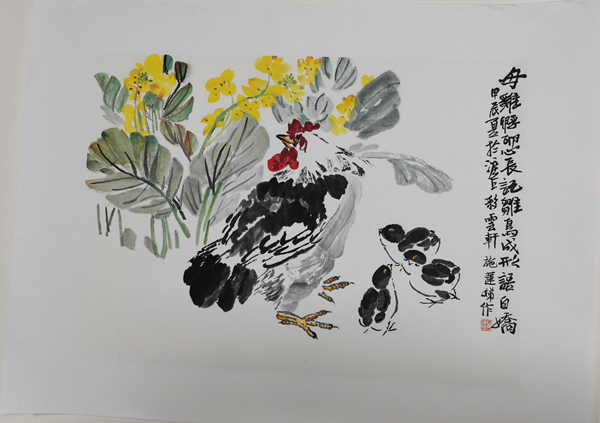 母雞孵卵心長記雛鳥成形語自嬌
甲辰夏於滬上彩雲軒 施蓮娣作